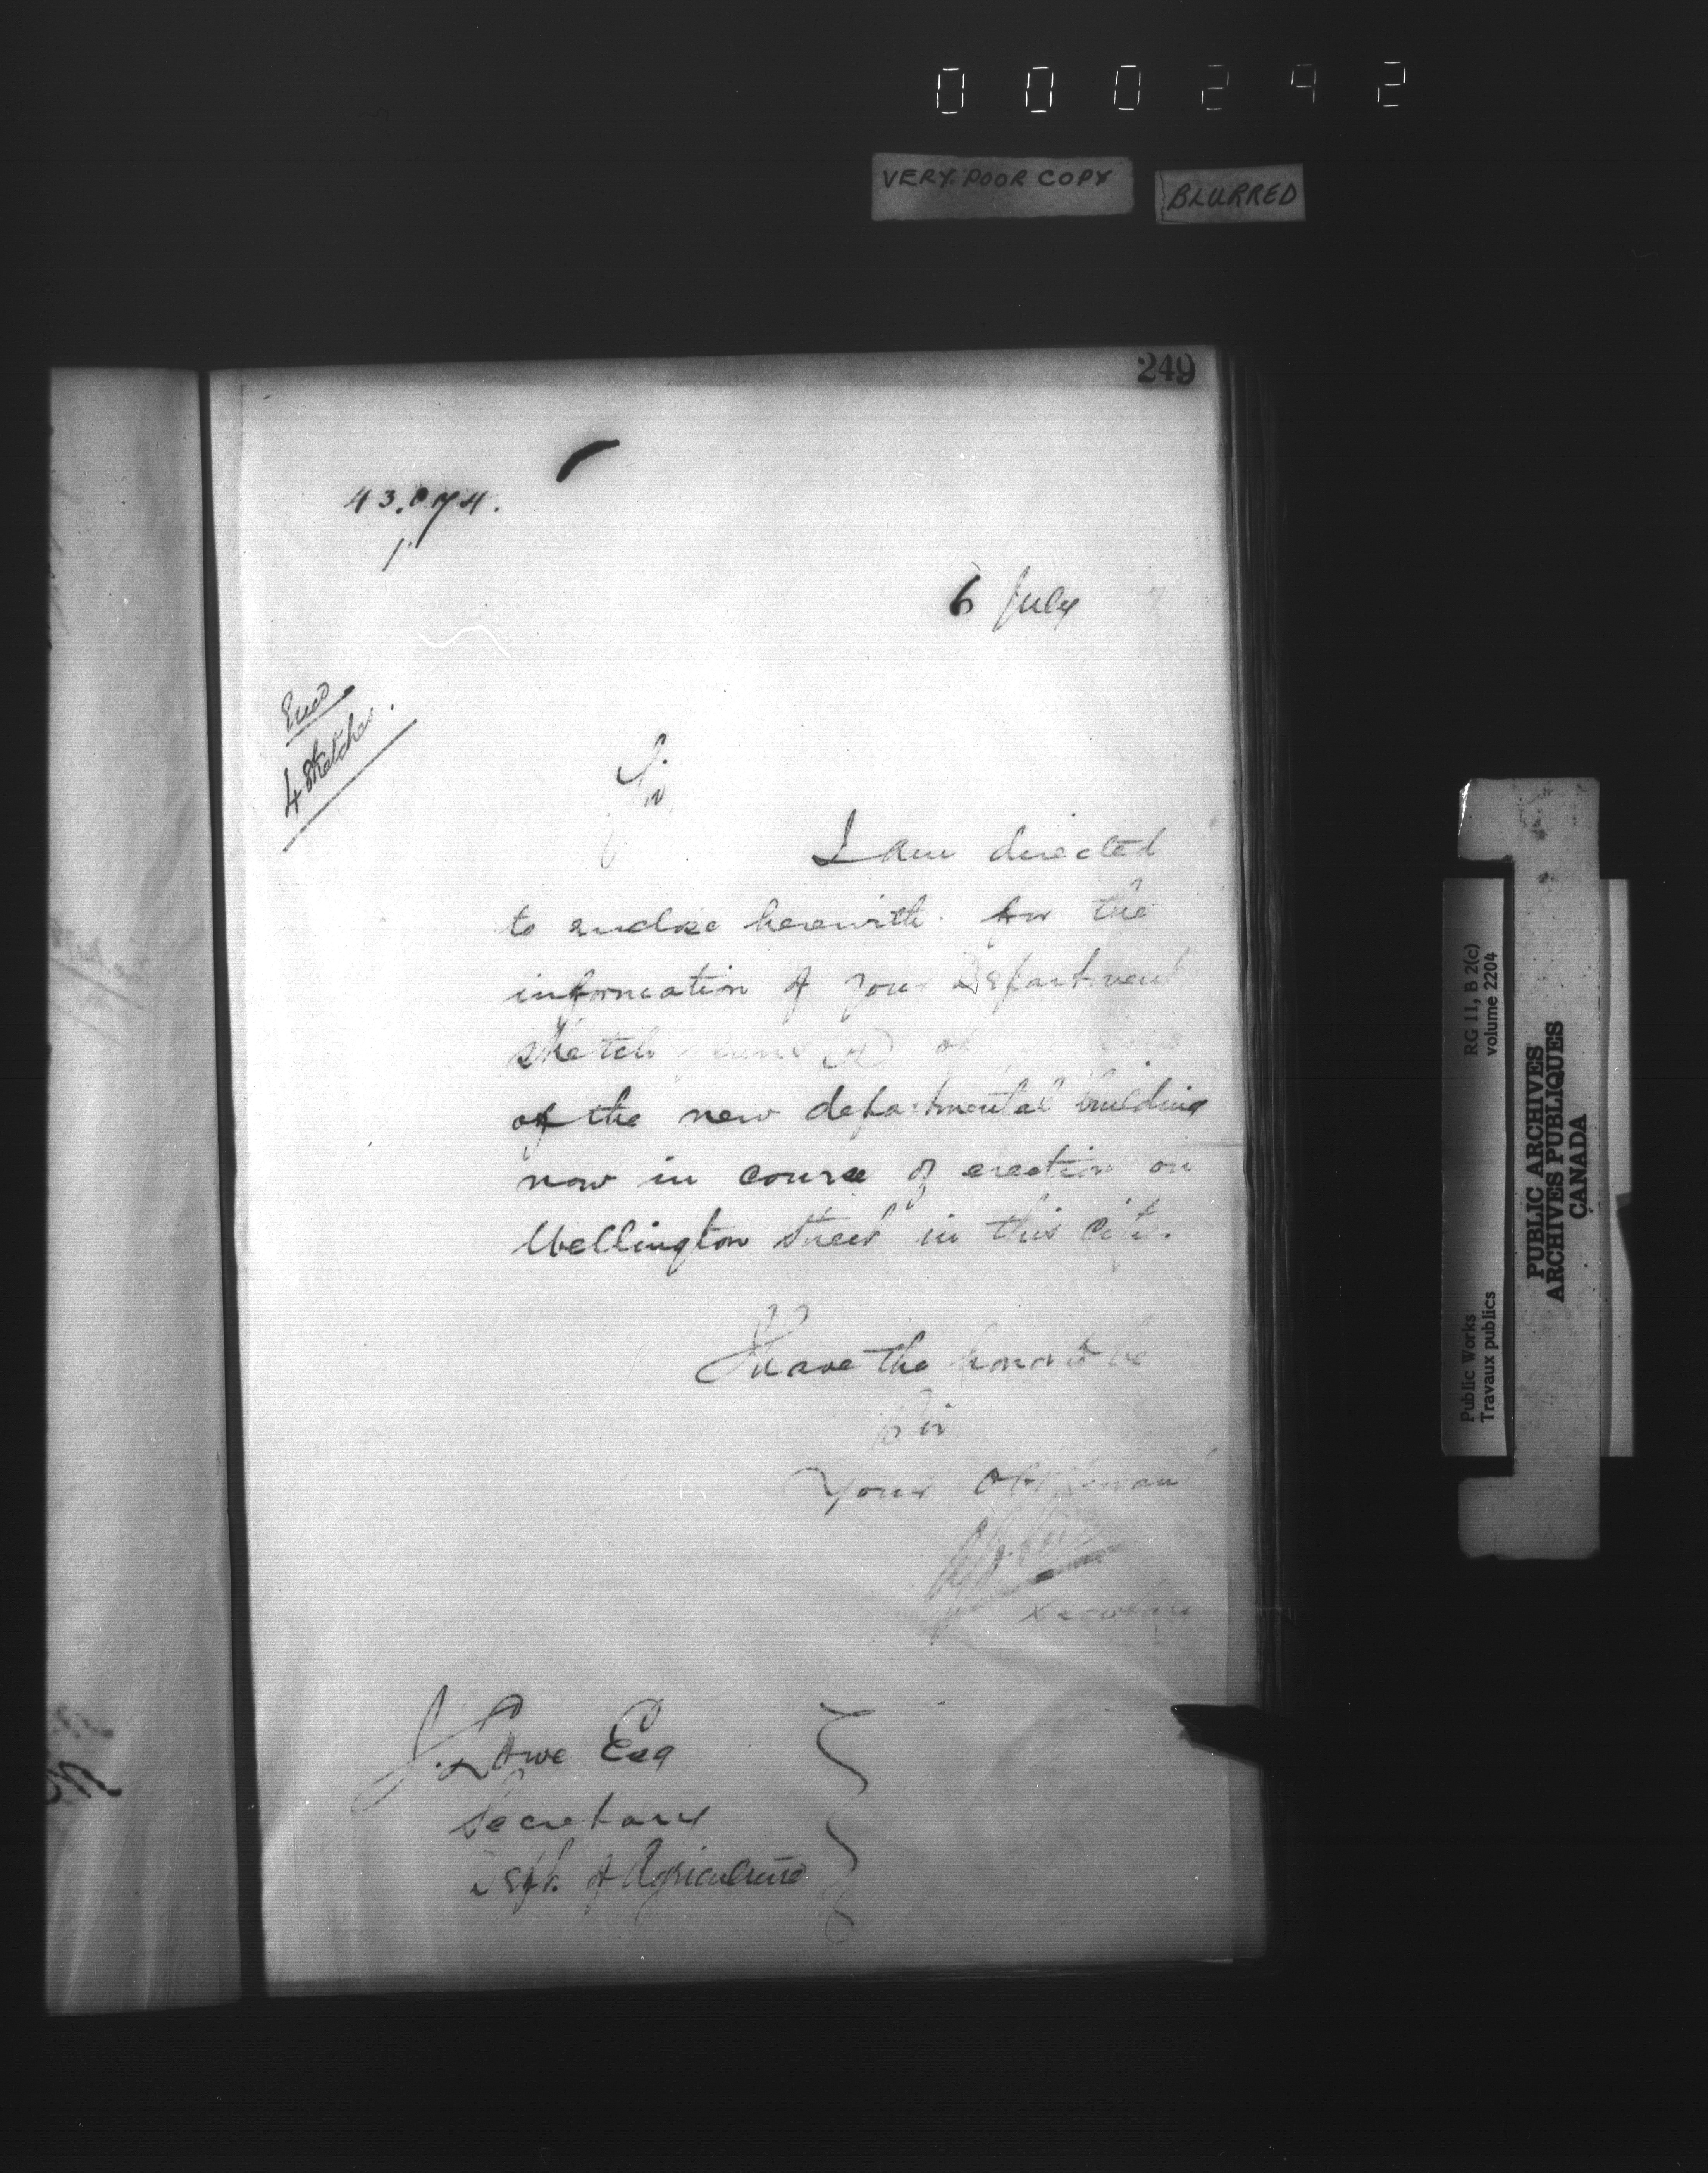 000292
VERY POOR COPY
BLURRED
249
43.074.
1.
6 July
Encd
4 Sketches.
Sir
I am directed
to enclose herewith for the
information of your Department
sketch plans (4) of
of the new departmental building
now in course of erection on
Wellington Street in this City.
I have the honor to be
Sir
Your Obt Servant
Secretary
J. Lowe Esq
Secretary
Dept. of Agriculture
Public Works
Travaux publics
RG 11, B 2(c)
volume 2204
PUBLIC ARCHIVES
ARCHIVES PUBLIQUES
CANADA